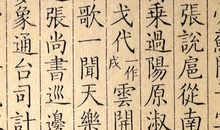 張説扈從南
乘過陽原淑
戈代一作戍雲開
歌一聞天樂
張尚書巡邊
象通台司計